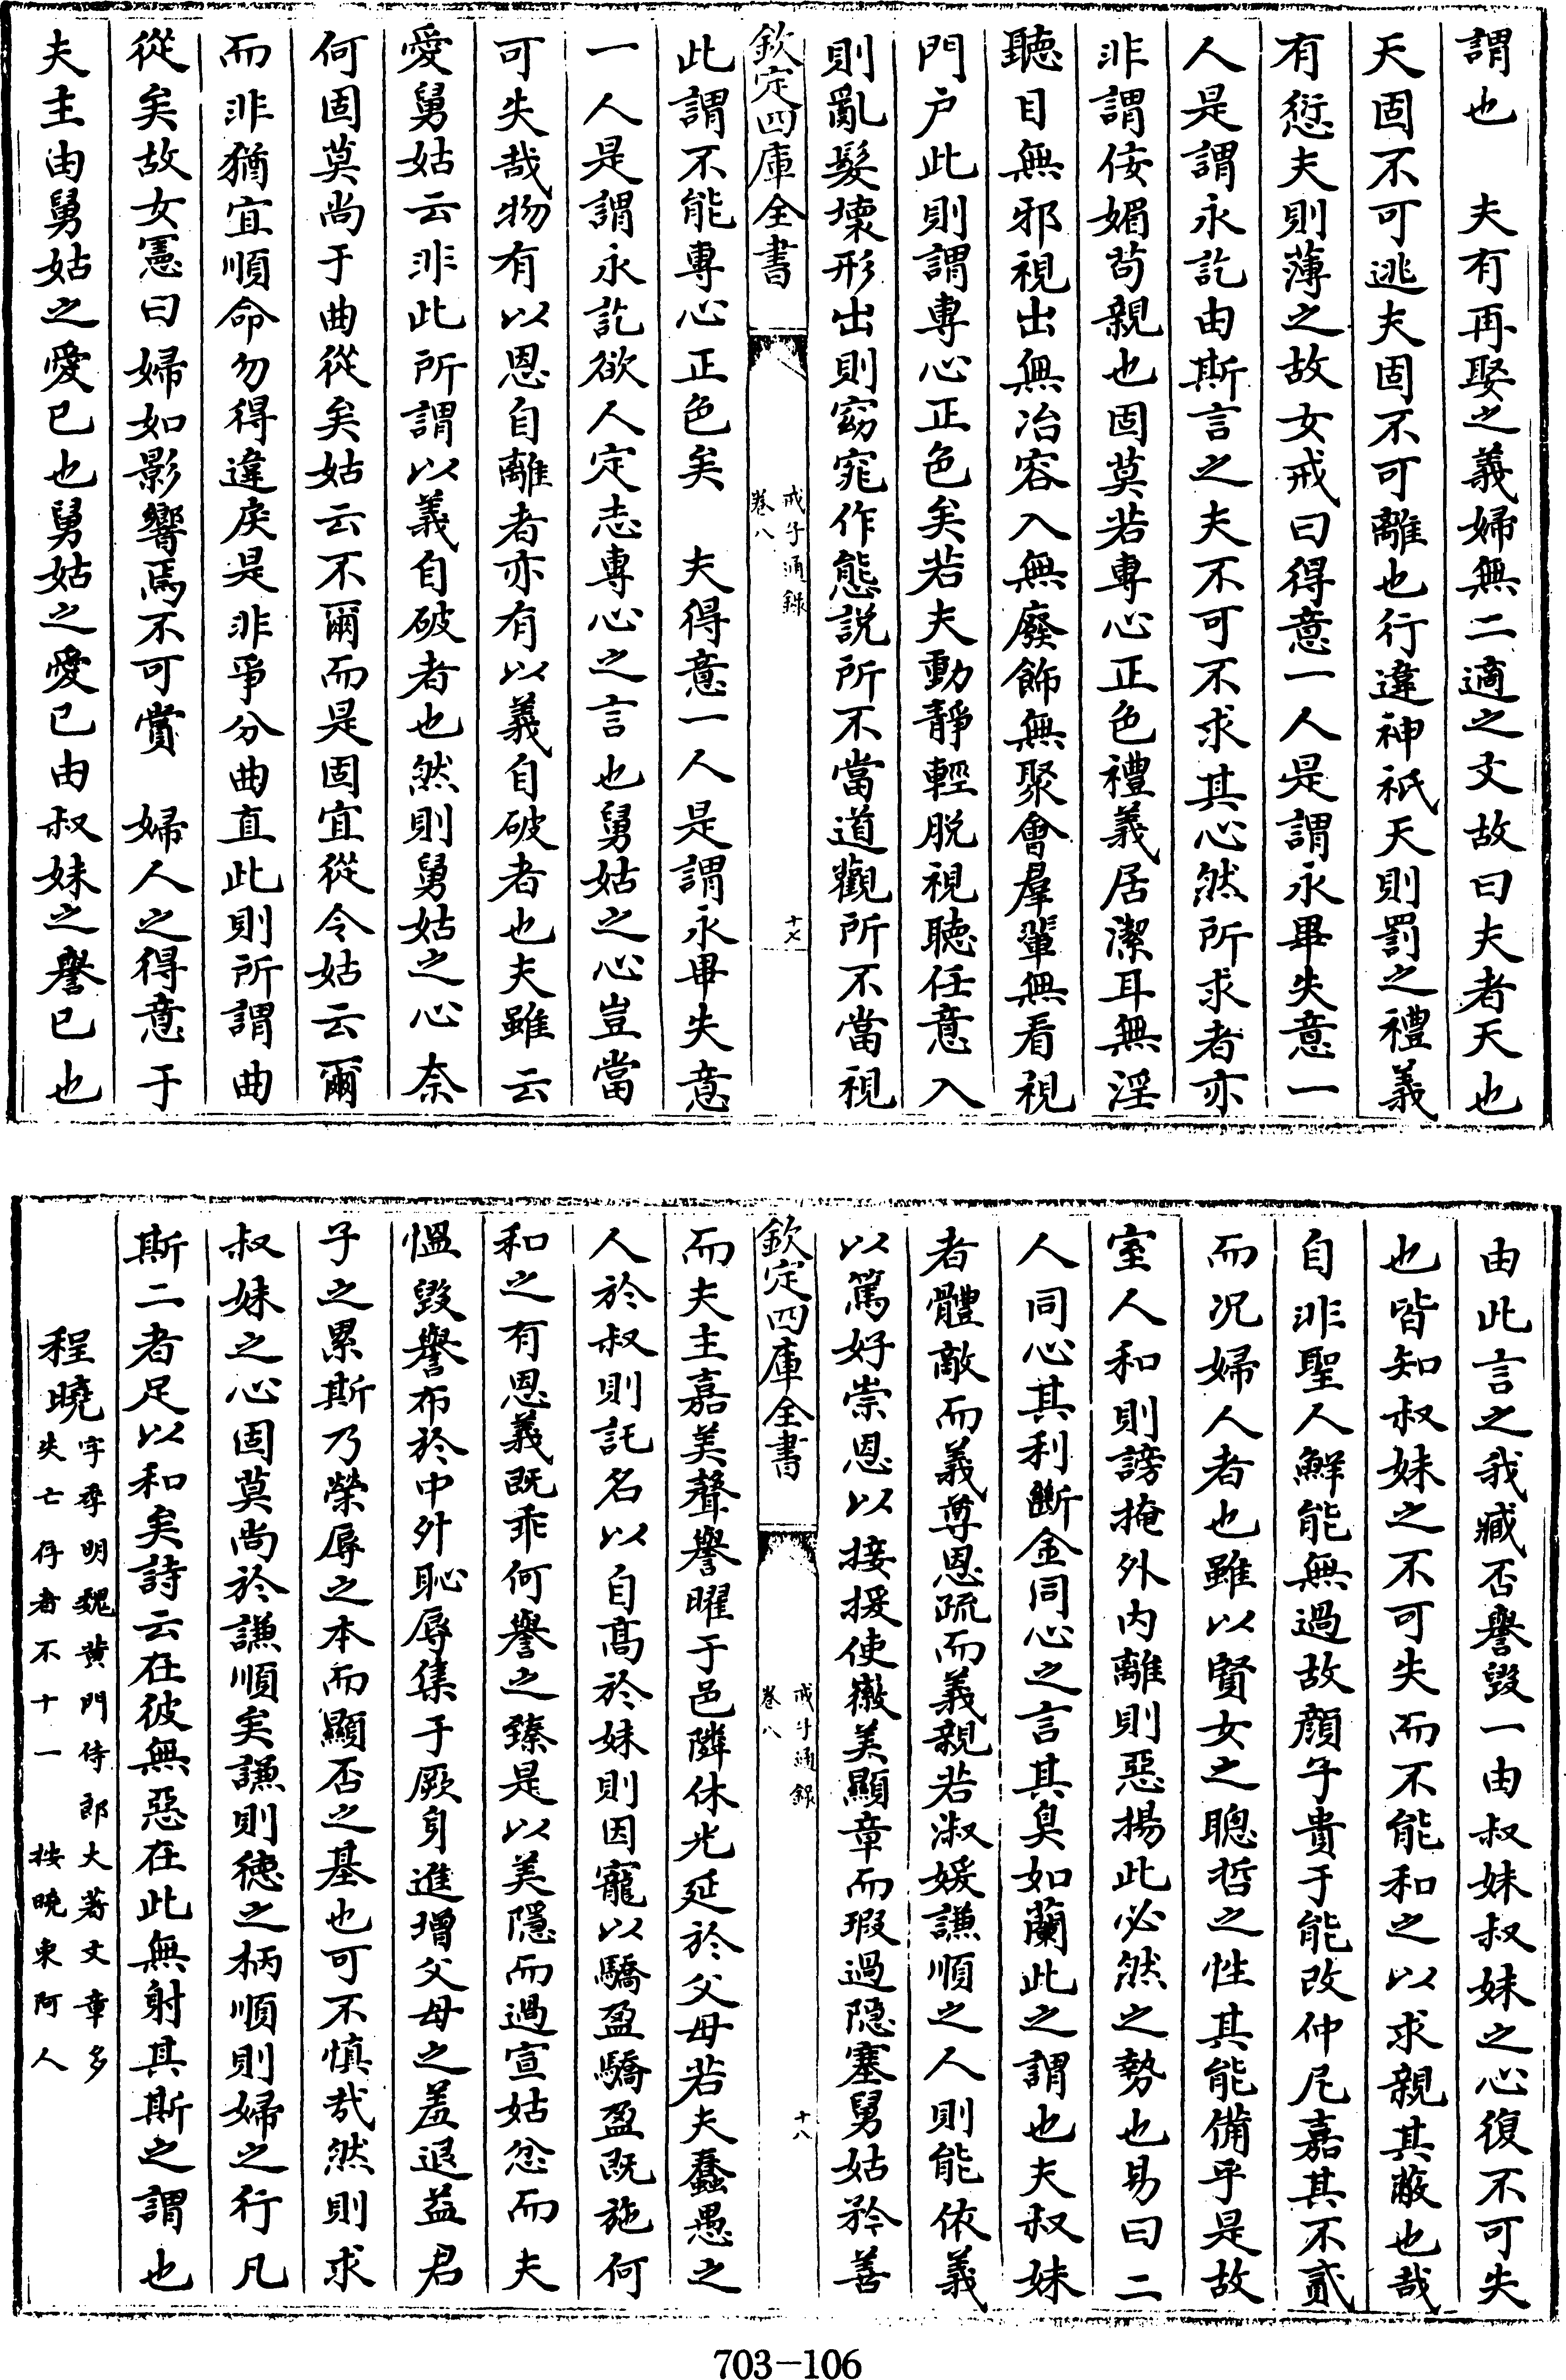 謂也　夫有再娶之義婦無二適之文故曰夫者天也
天固不可逃夫固不可離也行違神祇天則罰之禮義
有愆夫則薄之故女戒曰得意一人是謂永畢失意一
人是謂永訖由斯言之夫不可不求其心然所求者亦
非謂佞媚茍親也固莫若專心正色禮義居潔耳無淫
聽目無邪視出無冶容入無廢飾無聚會羣輩無看視
門户此則謂專心正色矣若夫動靜輕脱視聴任意入
則亂髮壞形出則窈窕作態説所不當道觀所不當視
欽定四庫全書
戒子通錄
卷八
十七
此謂不能專心正色矣　夫得意一人是謂永畢失意
一人是謂永訖欲人定志專心之言也舅姑之心豈當
可失哉物有以恩自離者亦有以義自破者也夫雖云
愛舅姑云非此所謂以義自破者也然則舅姑之心奈
何固莫尚于曲從矣姑云不爾而是固宜從令姑云爾
而非猶宜順命勿得違戾是非爭分曲直此則所謂曲
從矣故女憲曰婦如影響焉不可賞　婦人之得意于
夫主由舅姑之愛已也舅姑之愛已由叔妹之譽已也
由此言之我臧否譽毀一由叔妹叔妹之心復不可失
也皆知叔妹之不可失而不能和之以求親其蔽也哉
自非聖人鮮能無過故顔子貴于能改仲尼嘉其不貳
而况婦人者也雖以賢女之聰哲之性其能備乎是故
室人和則謗掩外内離則惡揚此必然之勢也易曰二
人同心其利斷金同心之言其臭如蘭此之謂也夫叔妹
者體敵而義尊恩疏而義親若淑媛謙順之人則能依義
以篤好崇恩以接援使徽美顯章而瑕過隠塞舅姑矜善
欽定四庫全書
戒子通錄
卷八
十八
而夫主嘉美聲譽曜于邑隣休光延於父母若夫蠢愚之
人於叔則託名以自髙於妹則因寵以驕盈驕盈既施何
和之有恩義既乖何譽之臻是以美隱而過宣姑忿而夫
愠毀譽布於中外恥辱集于厥身進增父母之羞退益君
子之累斯乃榮辱之本而顯否之基也可不慎哉然則求
叔妹之心固莫尚於謙順矣謙則徳之柄順則婦之行凡
斯二者足以和矣詩云在彼無惡在此無射其斯之謂也
程曉字季明魏黄門侍郎大著文章多
失亡存者不十一　按曉東阿人
703-106